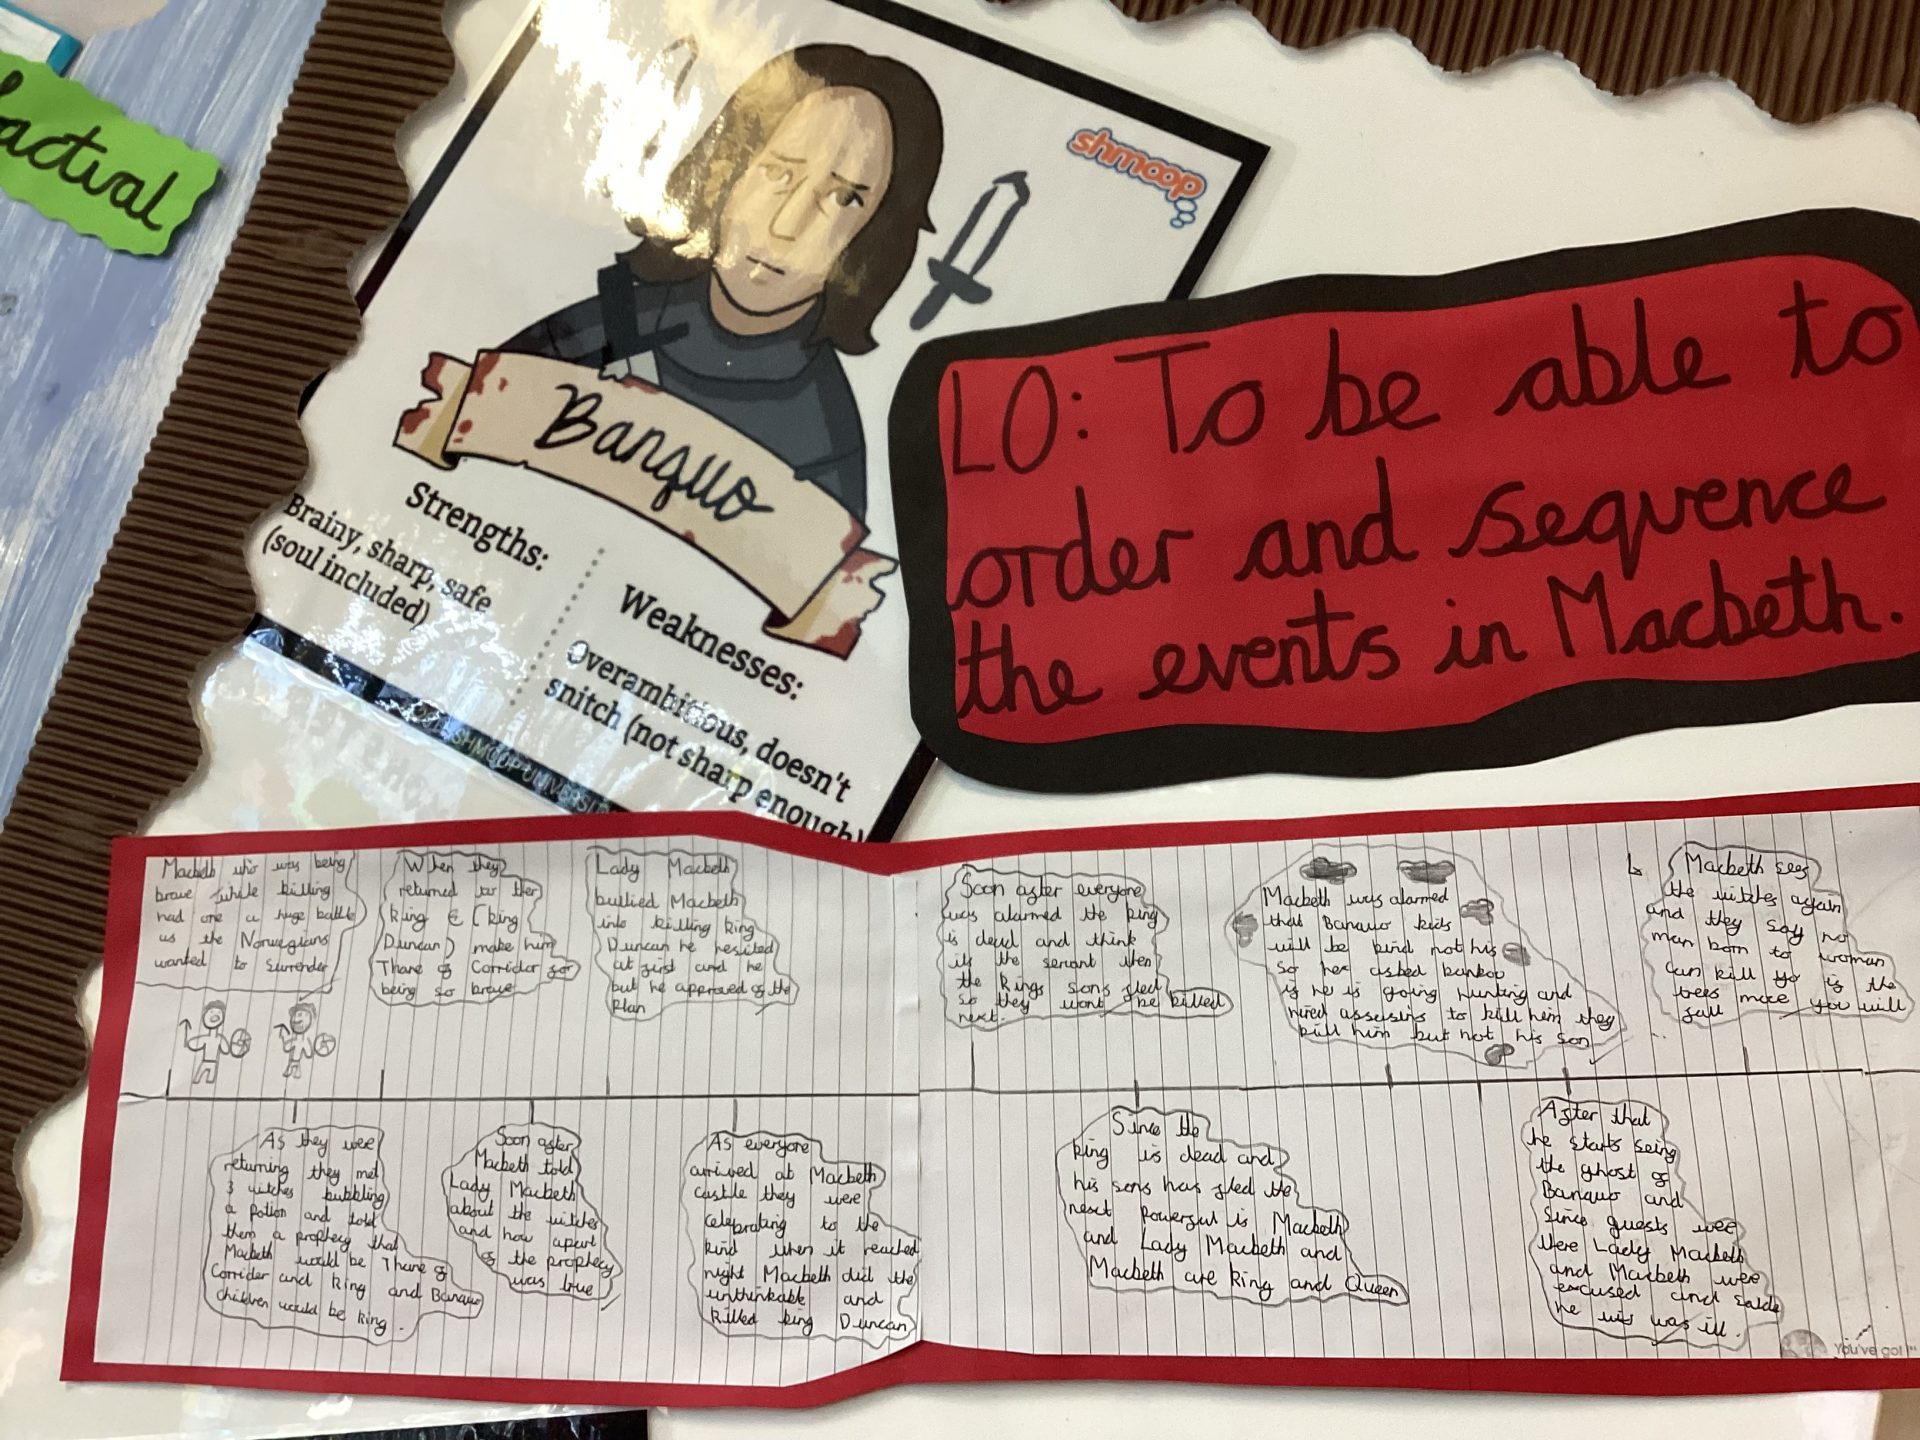 actual
shmoop
Banquo
Strengths:
Brainy, sharp, safe
(soul included)
Weaknesses:
Overambitious, doesn't
snitch (not sharp enough)
SHMOOP UNIVERSI
LO: To be able to
order and sequence
the events in Macbeth.
Macbeth who was being
brave while killing
had one a huge battle
as the Norwegians
wanted to surrender
As they were
returning they met
3 witches bubbling
a potion and told
them a prophecy that
Macbeth would be Thane of
Corrider and king and Banquo
children would be king.
When they
returned to the
king (king
Duncan) make him
Thane of Corridor for
being so brave
Soon after
Macbeth told
Lady Macbeth
about the witches
and how apart
of the prophecy
was true
Lady Macbeth
bullied Macbeth
into killing king
Duncan he hesited
at first and he
but he approved of the
Plan
As everyone
arrived at Macbeth
castle they were
celebrating to the
kind when it reached
night Macbeth did the
unthinkable and
killed king Duncan
Soon after everyone
was alarmed the king
is dead and think
its the servant then
the kings sons fled
so they wont be killed
next.
Since the
king is dead and
his sons has fled the
next powerful is Macbeth
and Lady Macbeth and
Macbeth are king and Queen
Macbeth was alarmed
that Banquo kids
will be kind not his
so he asked
if he is going hunting and
hired assassins to kill him they
kill him but not his son
After that
he starts seing
the ghost of
Banquo and
Since guests were
there Lady Macbeth
and Macbeth were
excused and
he was ill.
Macbeth sees
the witches again
and they say no
man born to woman
can kill yo is the
trees move you will
fall
You've got